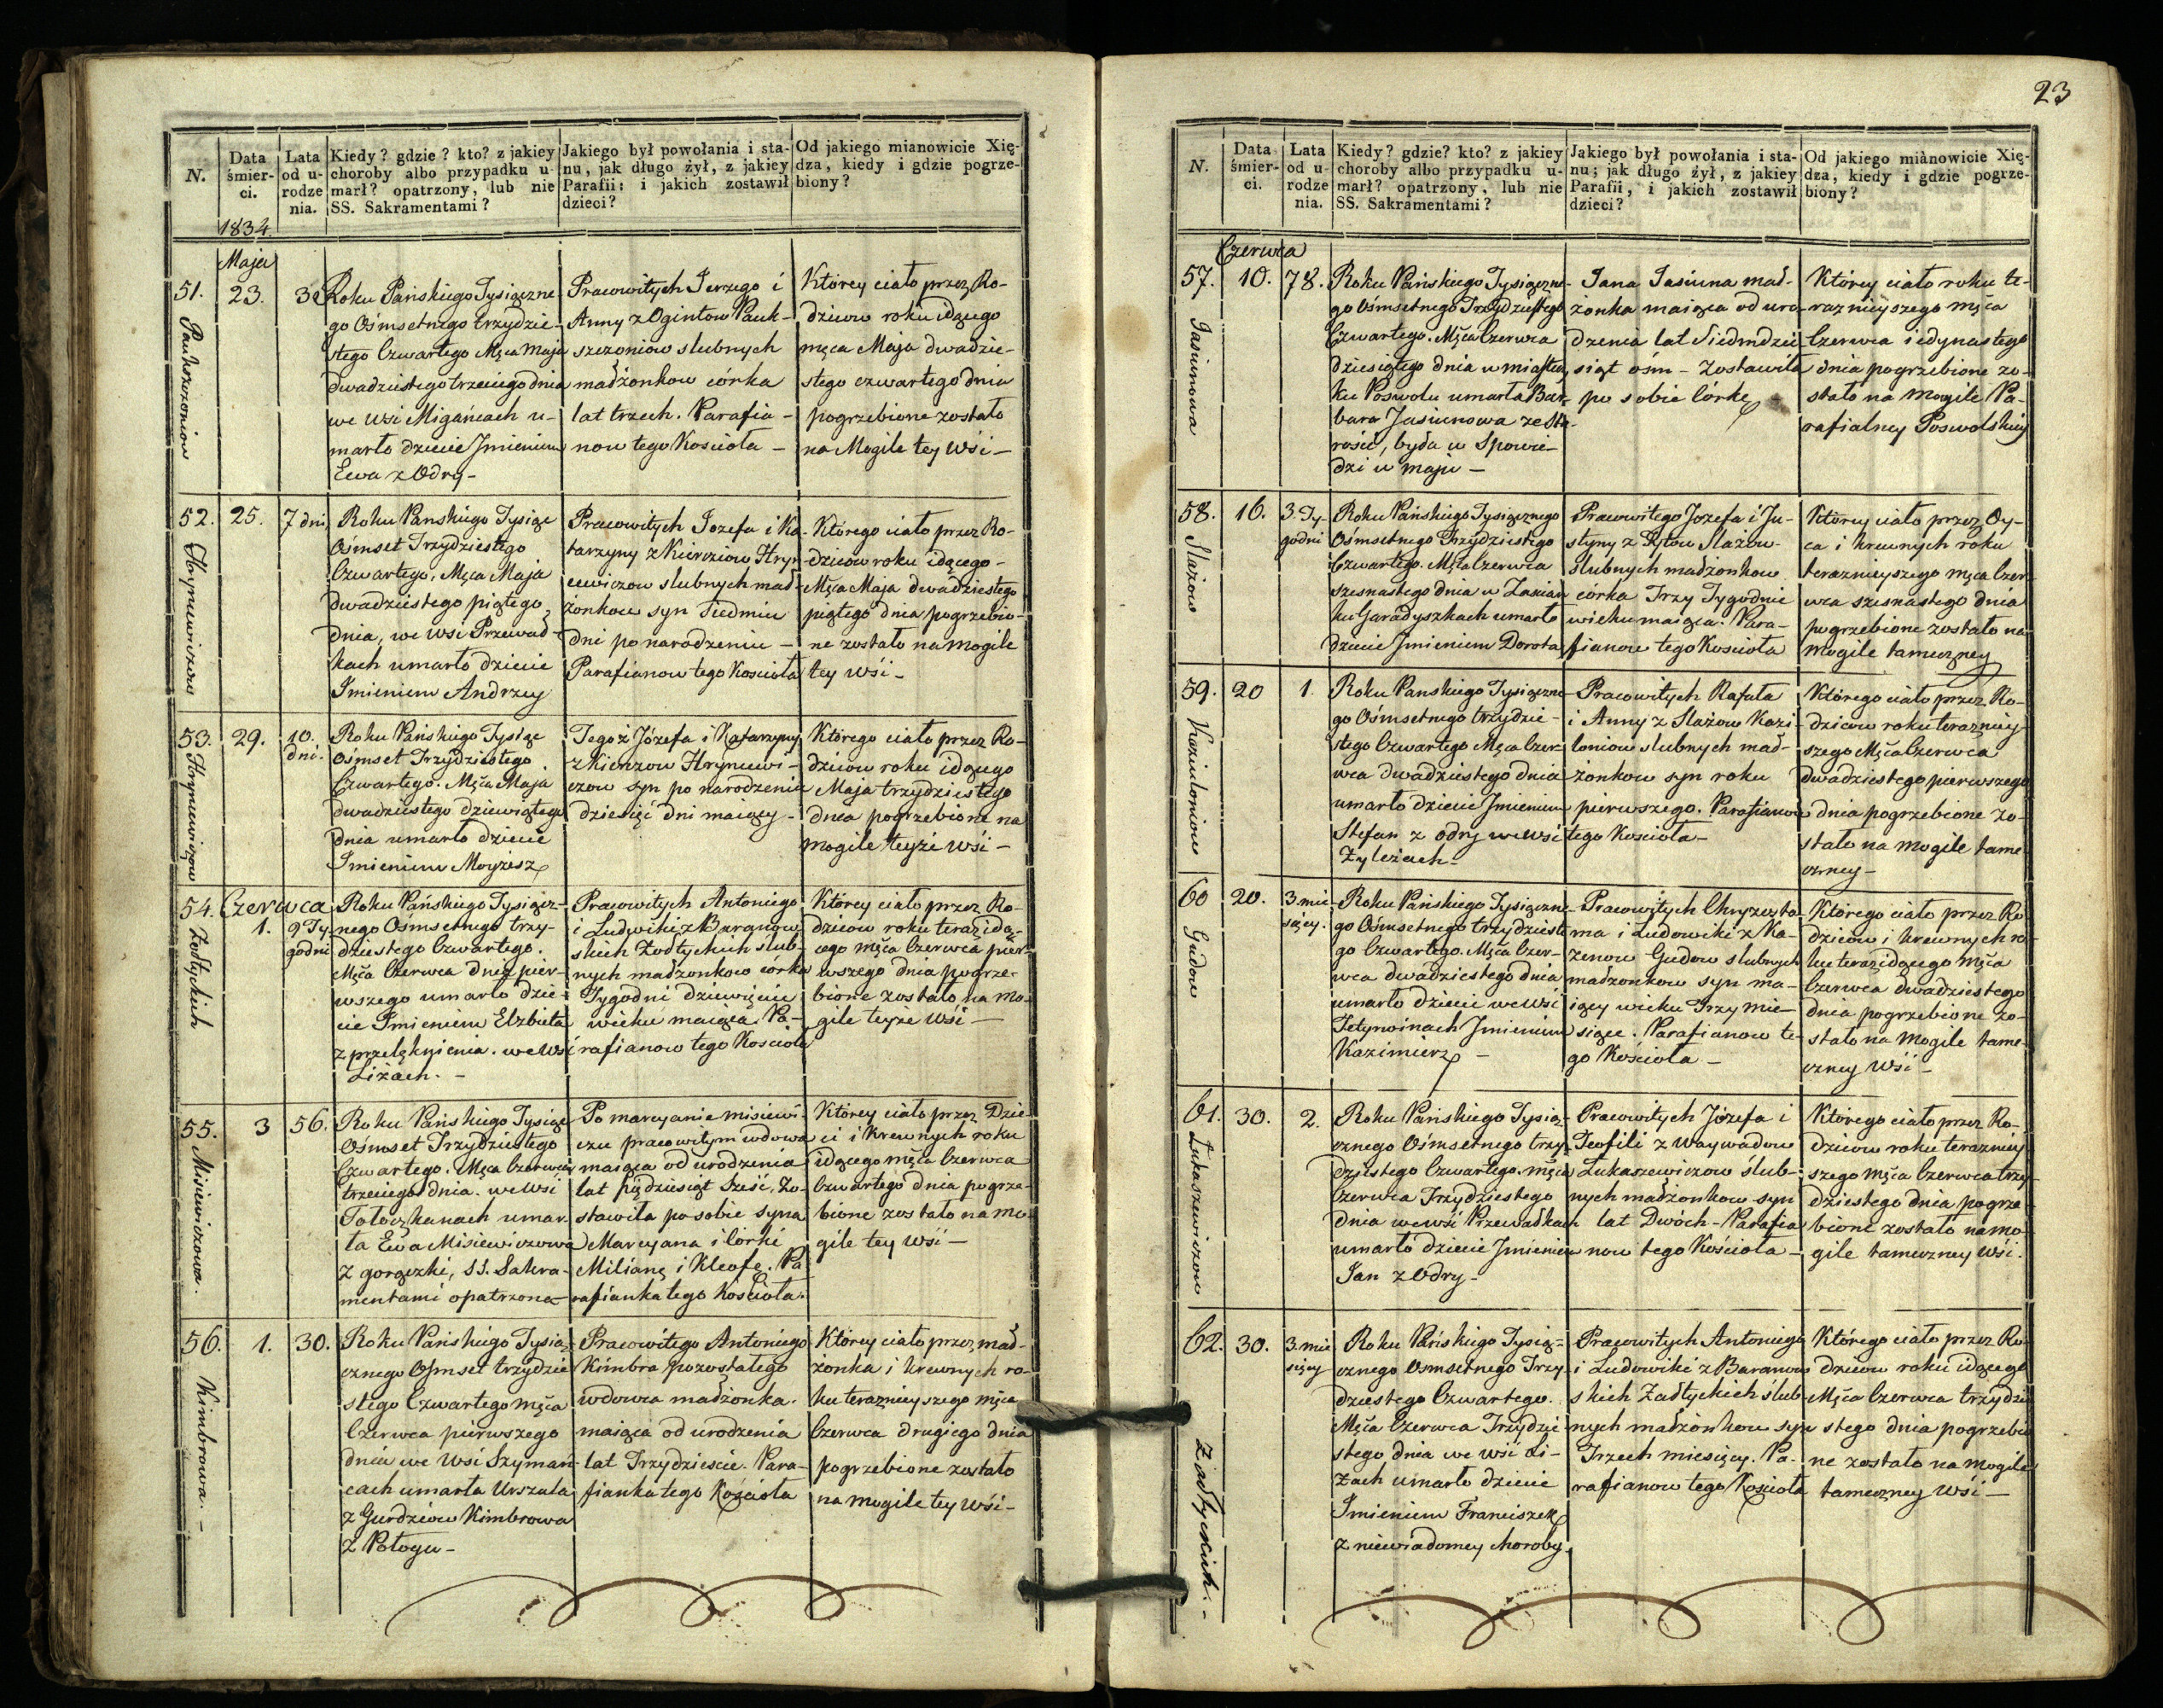 N.
Data śmierci.
Lata od urodzenia.
Kiedy? gdzie? kto? z jakiey
choroby albo przypadku u-
marł? opatrzony, lub nie
SS. Sakramentami?
Jakiego był powołania i sta-
nu, jak długo żył, z jakiey
Parafii: i jakich zostawił
dzieci?
Od jakiego mianowicie Xię-
dza, kiedy i gdzie pogrze-
biony?
1834.
Maja
51.
23.
3
Roku Pańskiego Tysiączne
go Ośmsetnego trzydzie-
stego Czwartego Mca Maja
dwadziestego trzeciego dnia
we wsi Migańcach u-
marło dziecie Jmieniem
Ewa z Odry-
Pracowitych Jerzego i
Anny z Ogintow Pauk-
szczoniow slubnych
madżonkow córka
lat trzech. Parafia-
now tego Koscioła -
Którey ciało przez Ro-
dzicow roku idącego
mca Maja dwadzie-
stego czwartego dnia
pogrzebione zostało
na Mogile tey Wsi -
Paukszczoniow
52.
25.
7 dni
Roku Panskiego Tysiąc
Ośmset Trzydziestego
Czwartego. Mca Maja
dwadziestego piątego
dnia, we wsi Przewad-
kach umarło dziecie
Imieniem Andrzey
Pracowitych Jozefa i Ka
tarzyny z Kierziow Hryn-
cewiczow slubnych mad-
żonkow syn Siedmiu
dni po narodzeniu -
Parafianow tego Kościoła
Którego ciało przez Ro-
dziców roku idącego -
Mca Maja dwadziestego
piątego dnia pogrzebio-
ne zostało na mogile
tey wśi -
53.
29.
10.
dni.
Roku Pańskiego Tysiąc
Ośmset Trzydziestego
Czwartego. Mca Maja
dwadziestego dziewiątego
dnia umarło dziecie
Imieniem Moyżesz
Tegoż Józefa i Katarzyny
czow syn po narodzeniu
dziesięć dni maiący -
Którego ciało przez Ro-
dzicow roku idącego
Maja trzydziestego
dnia pogrzebione na
mogile teyże wśi -
54.
Czerwca
1.
9 Ty-
godni
Roku Pańskiego Tysiącz-
nego Ośmsetnego trzy-
dziestego Czwartego.
Mca Czerwca dnia pier-
wszego umarło dzie-
cie Imieniem Elżbieta
z przelęknienia. we wsi
Liżach. -
Pracowitych Antoniego
i Ludwiki z Baranow
skich Żołtyckich slub-
nych madżonkow córka
Tygodni dziewięcie
wieku maiąca. Pa-
rafianow tego Kościoła
Którey ciało przez Ro-
dziców roku teraz idą-
cego męca Czerwca pier-
wszego dnia pogrze-
bione zostało na mo-
gile teyże Wsi -
55.
3
56.
Roku Pańskiego Tysiąc
Ośmset Trzydziestego
Czwartego. Mca Czerwca
trzeciego dnia. we wsi
Totoczkanach umar-
ła Ewa Misiewiczowa
z gorączki, SS. Sakra-
mentami opatrzona
Po marcyanie misiewi-
czu pracowitym wdowa
maiąca od urodzenia
lat pięćdziesiąt sześć. Zo-
stawiła po sobie syna
Marcyana i Córki
Milianę i Kleofę. Pa-
rafianka tego Kościoła.
Którey ciało przez Dzie
ci i Krewnych roku
idącego męca Czerwca
Czwartego dnia pogrze-
bione zostało na mo-
gile tey Wśi -
Misiewiczowa.
56.
1.
30.
Roku Pańskiego Tysią-
cznego Ośmset trzydzie
stego Czwartego męca
Czerwca pierwszego
dnia we Wsi Szymań-
cach umarła Urszula
z Gurdziow Kimbrowa
z Połogu -
Pracowitego Antoniego
Kimbra pozostałego
wdowca madżonka.
maiąca od urodzenia
lat Trzydzieście. Para-
fianka tego Kościoła
Którey ciało przez mad-
żonka i krewnych ro-
ku teraznieyszego męca
Czerwca drugiego dnia
pogrzebione zostało
na mogile tey Wśi -
Kimbrowa. -
23
N.
Data śmierci.
Lata od urodzenia.
Kiedy? gdzie? kto? z jakiey
choroby albo przypadku u-
marł? opatrzony, lub nie
SS. Sakramentami?
Jakiego był powołania i sta-
nu; jak długo żył, z jakiey
Parafii, i jakich zostawił
dzieci?
Od jakiego mianowicie Xię-
dza, kiedy i gdzie pogrze-
biony?
Czerwca
57.
10.
78.
Roku Pańskiego Tysiączne-
go Ośmsetnego Trzydziestego
Czwartego. Męca Czerwca
dziesiątego dnia w miastecz
ku Poswolu umarła Bar-
bara Jasiunowa ze sta-
rości, była u Spowie-
dzi w maju -
Jana Jasiuna mad-
żonka maiąca od uro-
dzenia lat Siedmdzie-
siąt ośm - Zostawiła
po sobie Córkę
Którey ciało roku te-
raznieyszego męca
Czerwca iedynastego
dnia pogrzebione zo-
stało na mogile Pa-
rafialney Poswolskiey
Jasiunowa
58.
16.
3 Ty-
godni
Roku Pańskiego Tysiącznego
Ośmsetnego Trzydziestego
Czwartego. Męca Czerwca
szesnastego dnia w Zaścian
ku Garadyszkach umarło
dziecie Jmieniem Dorota
Pracowitego Jozefa i Ju-
styny z Szłow Slażow
slubnych madżonkow
corka Trzy Tygodnie
wieku maiąca. Para-
fianow tego Kościoła
Którey ciało przez Oy-
ca i krewnych roku
teraznieyszego męca Czer-
wca szesnastego dnia
pogrzebione zostało na
mogile tameczney
Slażow
59.
20
1.
Roku Panskiego Tysiączne-
go Ośmsetnego trzydzie-
stego Czwartego Męca Czer
wca dwadziestego dnia
umarło dziecie Jmieniem
Stefan z odry we wsi
Żyleżach -
Pracowitych Rafała
i Anny z Slażow Kazi-
loniow slubnych mad-
żonkow syn roku
pierwszego. Parafianow
tego Kościoła -
Którego ciało przez Ro-
dzicow roku terazniey
szego Męca Czerwca
dwadziestego pierwszego
dnia pogrzebione zo-
stało na mogile tame-
czney -
60
20.
3. mie
sięcy.
Roku Pańskiego Tysiączne-
go Ośmsetnego trzydzieste
go Czwartego. Męca Czer-
wca dwadziestego dnia
umarło dziecie we wsi
Tetyrwinach Jmieniem
Kazimierz -
Pracowitych Chryzosto-
ma i Ludowiki z Ka-
zenow Gudow slubnych
madżonkow syn ma-
iący wieku Trzy mie-
siące. Parafianow te-
go Kościoła -
Którego ciało przez Ro
dzicow i krewnych ro-
ku teraz idącego Męca
Czerwca dwadziestego
dnia pogrzebione zo-
stało na mogile tame-
czney Wśi -
Gudow
61.
30.
2.
Roku Pańskiego Tysią-
cznego Ośmsetnego trzy-
dziestego Czwartego. męca
Czerwca Trzydziestego
dnia we wśi Przewadkach
umarło dziecie Jmieniem
Jan z Odry -
Pracowitych Józefa i
Teofili z Waywadow
Łukaszewiczow ślub-
nych madżonkow syn
lat Dwóch - Parafia
now tego Kościoła -
Którego ciało przez Ro-
dzicow roku terazniey
szego męca Czerwca trzy-
dziestego dnia pogrze-
bione zostało na mo-
gile tameczney Wśi.
Łukaszewiczow
62.
30.
3. mie
sięcy
Roku Pańskiego Tysią-
cznego Ośmsetnego Trzy-
dziestego Czwartego.
Męca Czerwca Trzydzie
stego dnia we wśi Li-
żach umarło dziecie
Imieniem Franciszek
z niewiadomey choroby.
Pracowitych Antoniego
i Ludowiki z Baranow
skich Żadłyckich ślub-
nych madżonkow syn
Trzech miesięcy. Pa-
rafianow tego Kościoła
Którego ciało przez Ro-
dzicow roku idącego
Męca Czerwca trzydzie
stego dnia pogrzebio
ne zostało na mogile
tameczney Wśi -